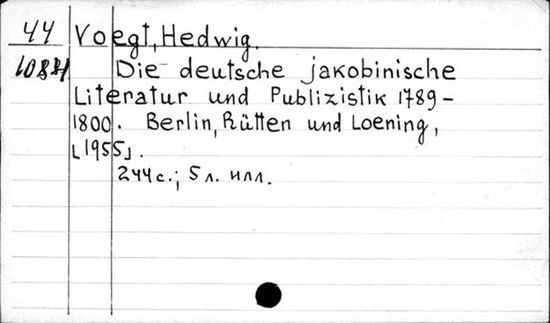 44 Voegt, Hedwig.
Die deutsche jakobinische
Literatur und Publizistik 1789-
1800. Berlin, Rütten und Loening,
[1955].
244 с.; 5 л. илл.